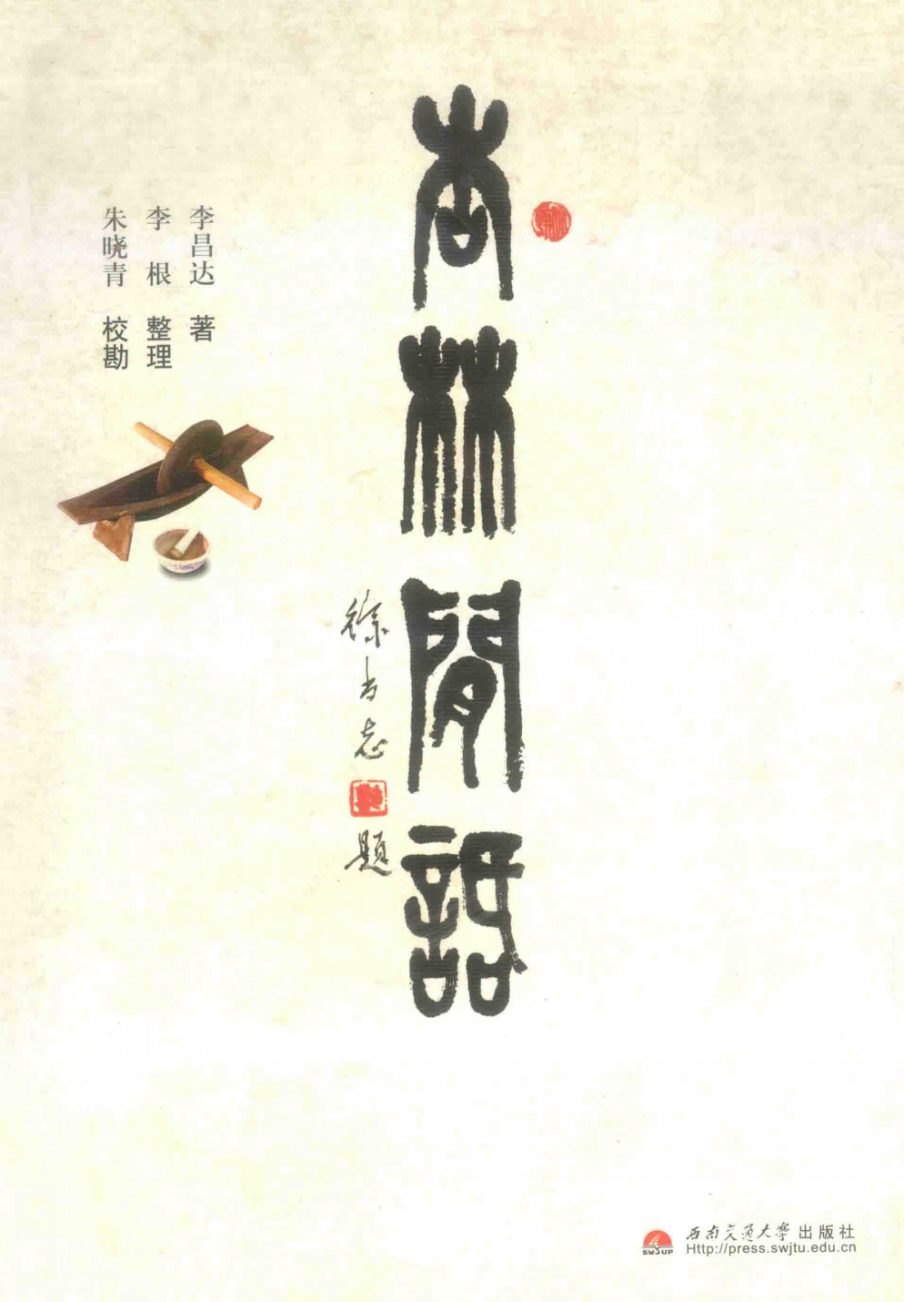 杏林閒話
徐尚志
題
李昌达 著
李根 整理
朱晓青 校勘
西南交通大學出版社
SWJUP
Http://press.swjtu.edu.cn